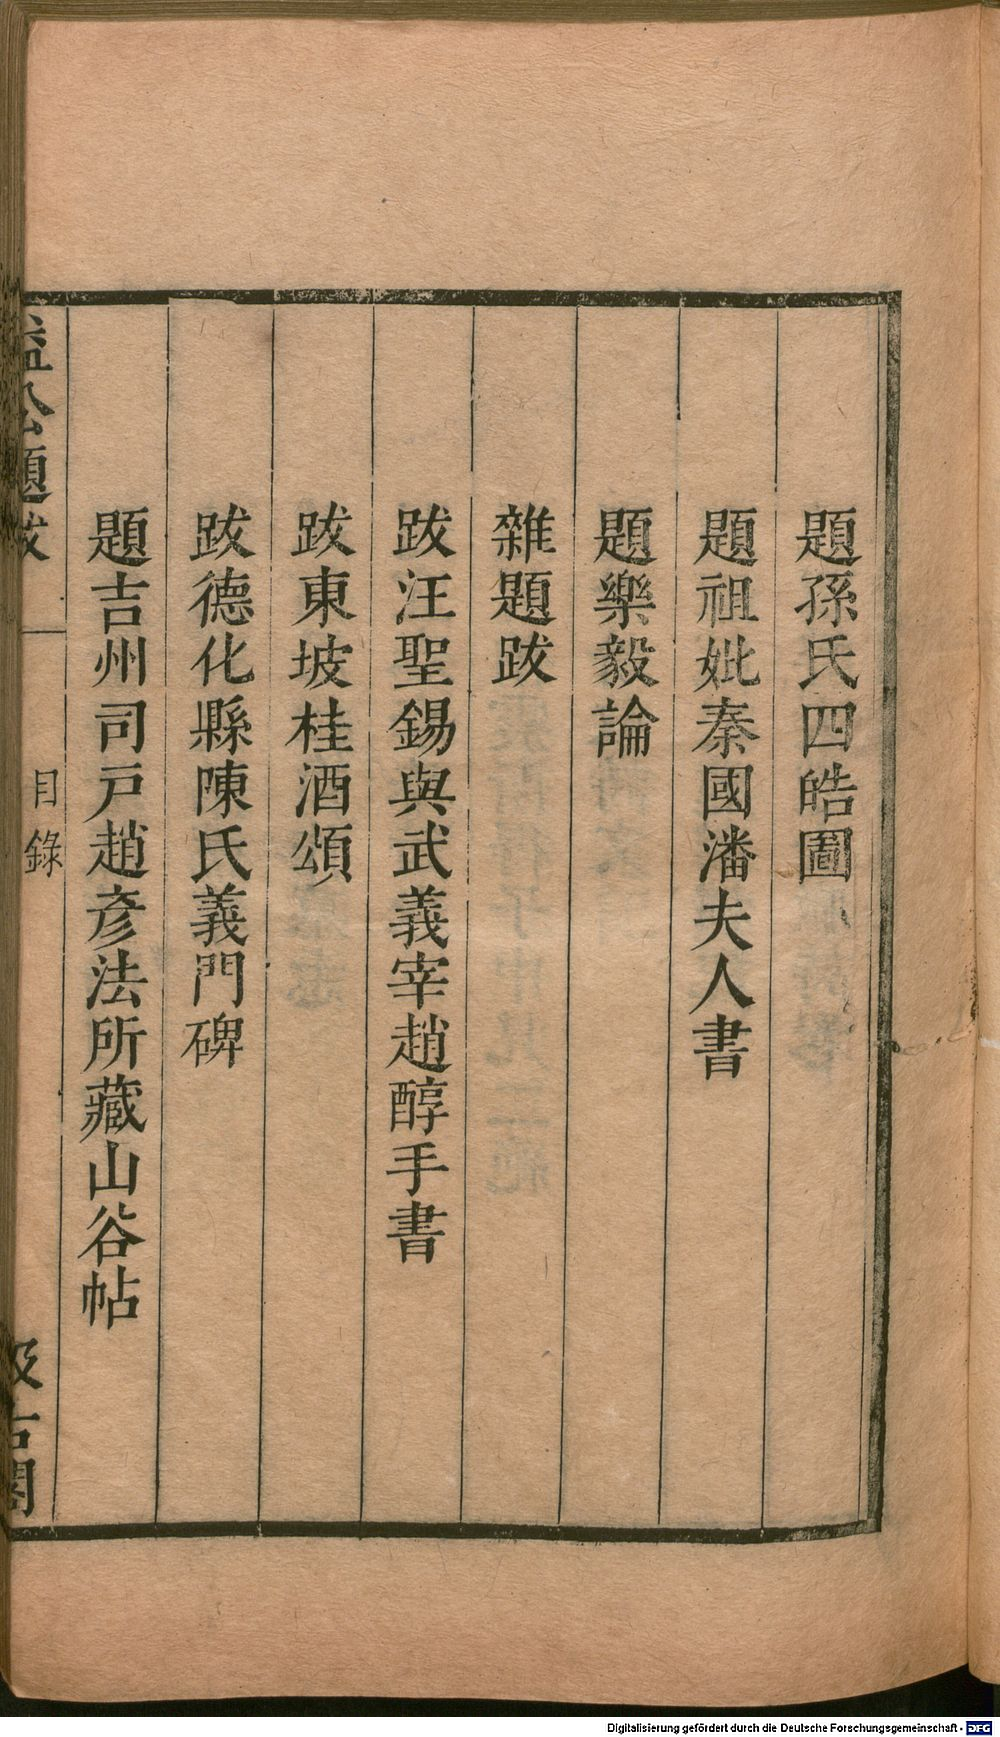 題孫氏四皓圖
題祖妣秦國潘夫人書
題樂毅論
雜題跋
跋汪聖錫與武義宰趙醇手書
跋東坡桂酒頌
跋德化縣陳氏義門碑
題吉州司戸趙彥法所藏山谷帖
益公題跋
目錄
汲古閣
Digitalisierung gefördert durch die Deutsche Forschungsgemeinschaft - DFG